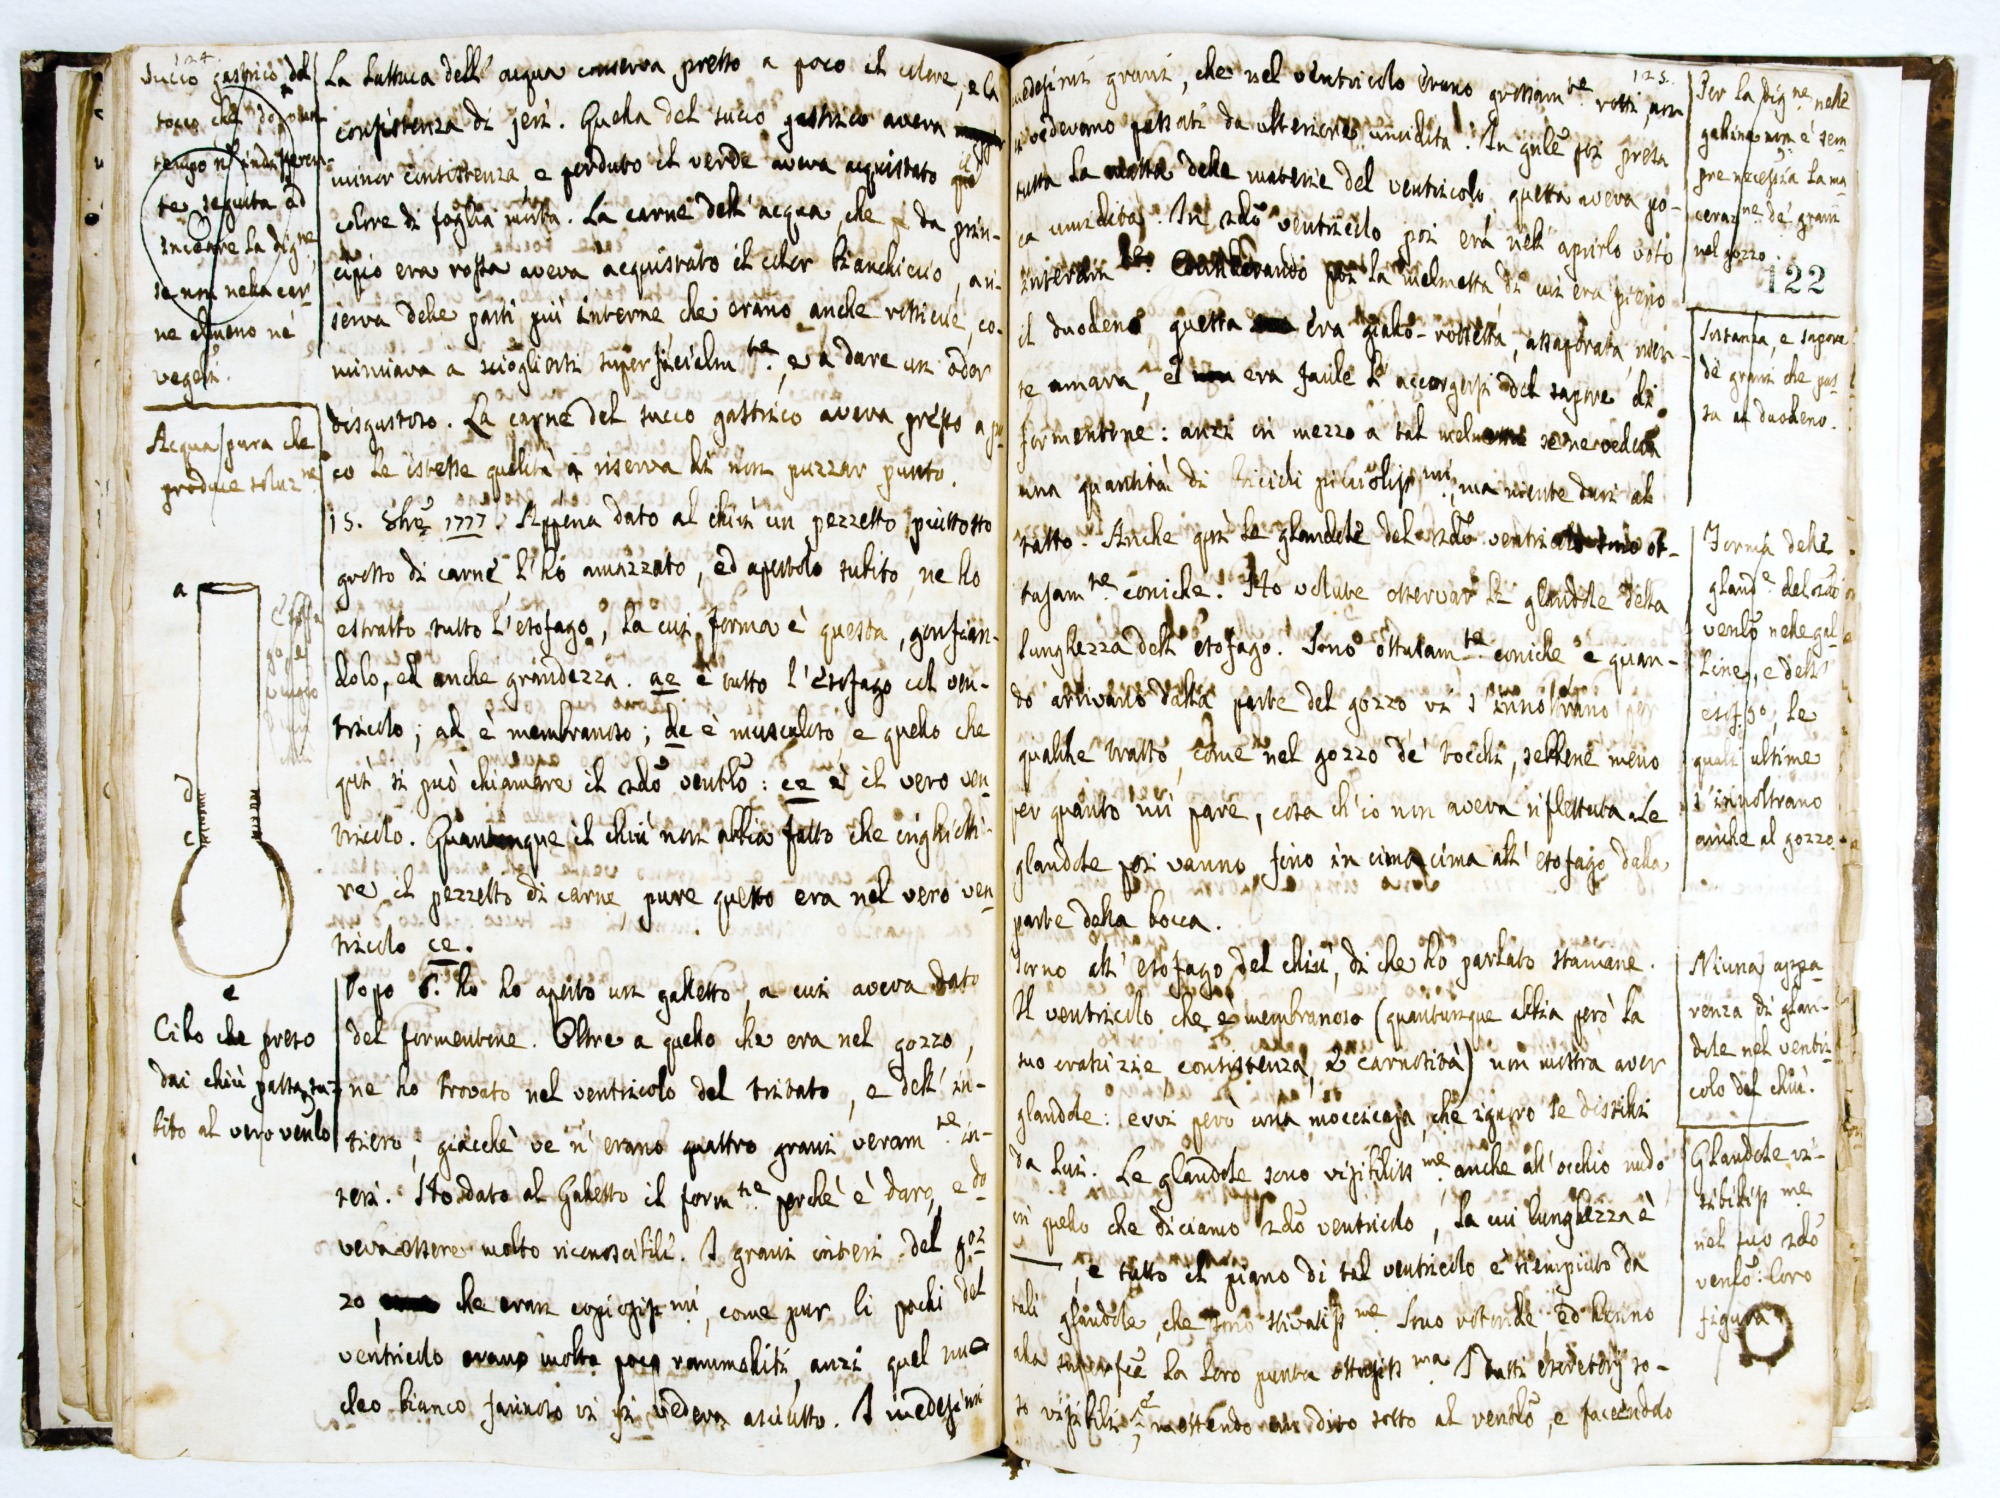 124.
Succo gastrico del
tocco che dopo
tempo
te seguita ad
incidere la dig.ne
se non nella car-
ne almeno ne'
veget.i
Acqua pura che
produce soluz.ne
a
d
c
e
Cibo che preso
dai chiù passa su-
bito al vero ventlo
La lattuca dell' acqua conserva presso a poco il colore, e la
consistenza di jeri. Quella del succo gastrico aveva
minor consistenza, e perduto il verde aveva acquistato
colore di foglia morta. La carne dell' acqua, che da prin-
cipio era rossa aveva acquistato il color bianchiccio, a ri-
serva delle parti più interne che erano anche rossicce, co-
minciava a sciogliersi superficialm.te, e a dare un odor
disgustoso. La carne del succo gastrico aveva presso a po
co le istesse qualità a riserva di non puzzar punto.
15. 8bre 1777. Appena dato al chiù un pezzetto piuttosto
grosso di carne l' ho amazzato, ed apertolo subito, ne ho
estratto tutto l' esofago, la cui forma è questa, gonfian-
dolo, ed anche grandezza. ae è tutto l' esofago col ven-
tricolo; ad è membranoso; dc è musculoso, e quello che
qui si può chiamare il 2do ventlo: ce è il vero ven
tricolo. Quantunque il chiù non abbia fatto che inghiotti-
re il pezzetto di carne, pure questo era nel vero ven
tricolo ce.
Dopo 6. ho ho aperto un galletto, a cui aveva dato
del formentone. Oltre a quello che era nel gozzo,
ne ho trovato nel ventricolo del tritato, e dell' in-
tiero; giacchè ve n' erano quattro grani veram.te in-
teri. Ho dato al Galletto il form.ne perchè è duro, e do
veva essere molto riconoscibile. I grani interi del goz
zo, che eran copiosiss.mi, come pur li pochi del
ventricolo erano molto poco rammolliti, anzi quel nu
cleo bianco farinoso vi si vedeva asciutto. I medesimi
125.
122
medesimi grani, che nel ventricolo erano grossam.te rotti, non
si vedevano passati da ulteriore umidità. In gnle poi presa
tutta la massa delle materie del ventricolo, questa aveva po-
ca umidità. Il 2do ventricolo poi era nell' aprirlo voto
interam.te. Considerando poi la melmetta di cui era pieno
il duodeno, questa era giallo-rossetta, assaporata, nien-
te amara, ed era facile l' accorgersi del sapore di
formentone: anzi in mezzo a tal melma se ne vedeva
una quantità di briccioli piccoliss.mi, ma niente duri al
tatto. Anche qui le glandole del 2do ventricolo sono ot-
tusam.te coniche. Ho volute osservar le glandole della
lunghezza dell' esofago. Sono ottusam.te coniche e quan-
do arrivano dalla parte del gozzo vi s' innoltrano per
qualche tratto, come nel gozzo de' tocchi, sebbene meno
per quanto mi pare, cosa ch' io non aveva riflettuta. Le
glandole poi vanno fino in cima cima all' esofago dalla
parte della bocca.
Torno all' esofago del chiù, di che ho parlato stamane.
Il ventricolo che è membranoso (quantunque abbia però la
sua consistenza, e carnosità) non mostra aver
glandole: evvi però una moccicaja, che ignoro se distilli
da lui. Le glandole sono visibiliss.me anche all' occhio nudo
in quello che diciamo 2do ventricolo, la cui lunghezza è
, e tutto il piano di tal ventricolo è riempiuto da
tali glandole, che sono stivatiss.me. Sono rotonde, ed hanno
alla superfcie la loro punta ottusiss.ma. I dutti escretorj so-
no visibiliss.mi, mettendo un dito sotto al ventlo, e facendolo
Per la dig.ne nelle
galline non è sem
pre necessaria la ma
ceraz.ne de' grani
nel gozzo.
Sostanza, e sapore
de' grani che pas
sa al duodeno.
Forma delle
gland.e del 2do
ventlo nelle gal-
line, e dell'
esofago, le
quali ultime
s' innoltrano
anche al gozzo.
Niuna appa
renza di glan-
dole nel ventri-
colo del chiù.
Glandole vi-
sibiliss.me
nel suo 2do
ventlo: loro
figura